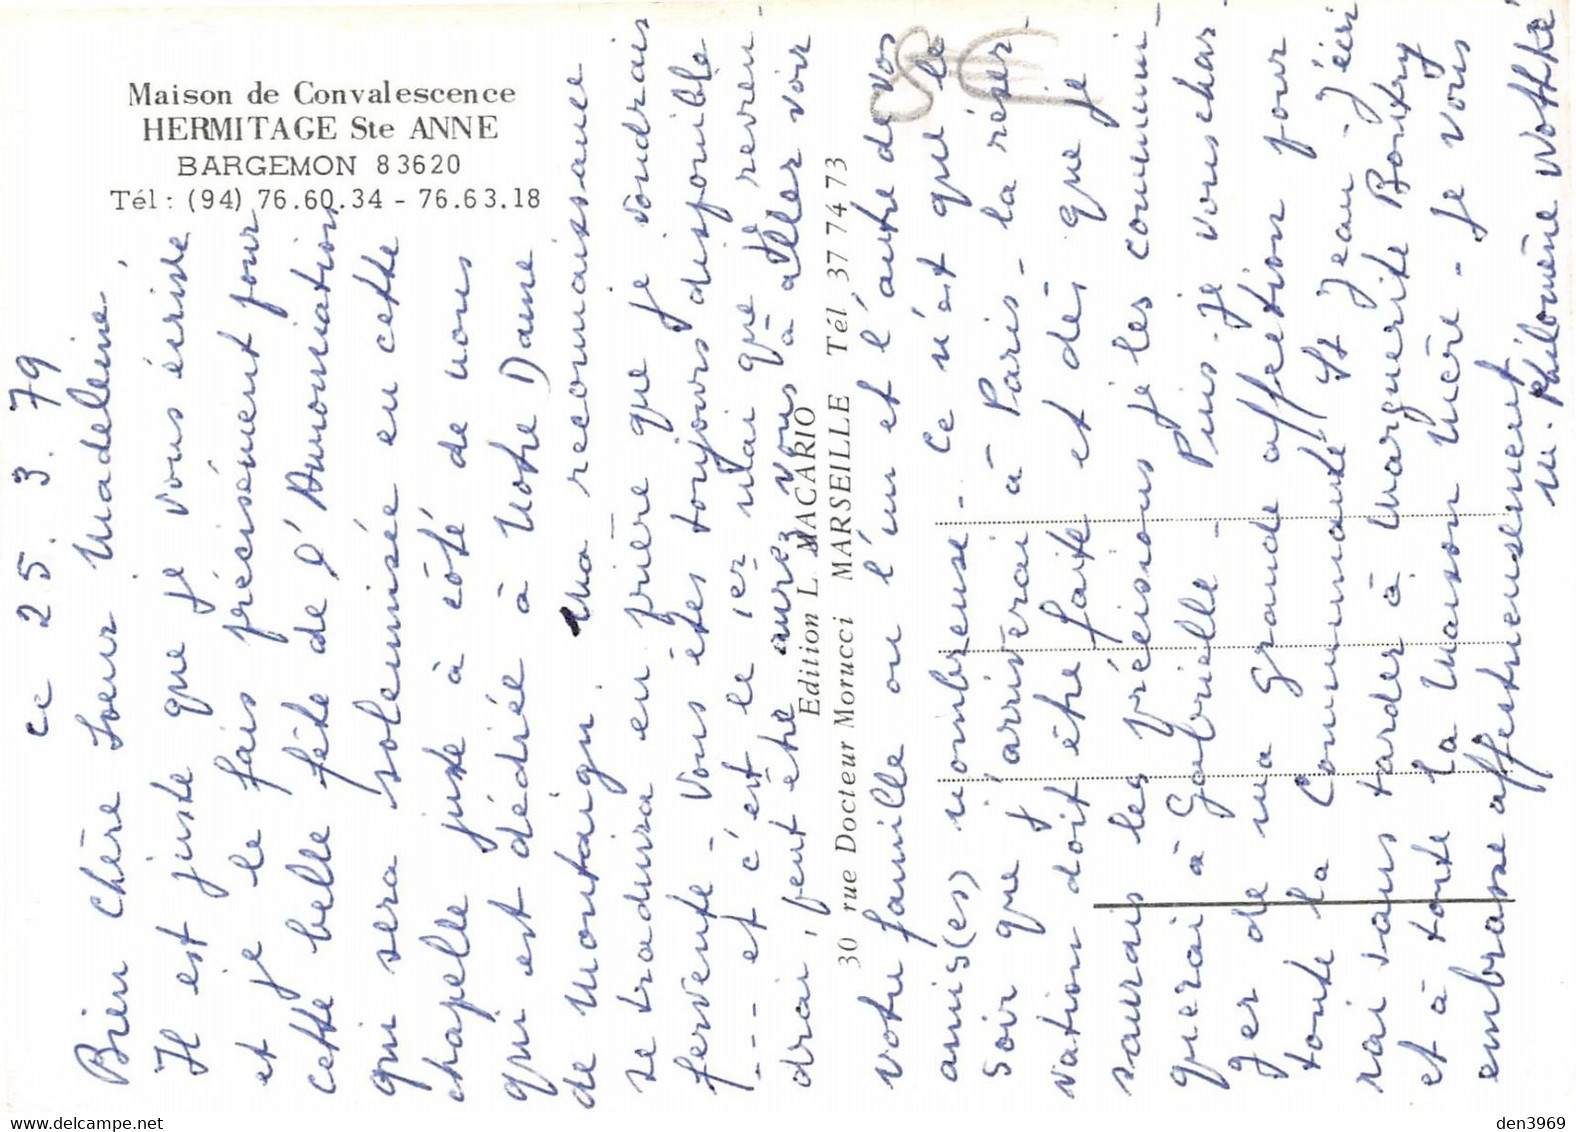 Maison de Convalescence
HERMITAGE Ste ANNE
BARGEMON 83620
Tél : (94) 76.60.34 - 76.63.18
ce 25. 3. 79
Bien chère Soeur Madeleine,
Il est juste que je vous écrive
et je le fais précisément pour
cette belle fête de l'Annonciation
qui sera solennisée en cette
chapelle juste à côté de nous
qui est dédiée à Notre Dame
de Montaigu. Ma reconnaissance
se traduira en prière que je voudrais
fervente - Vous êtes toujours disponible
--- et c'est le 1er mai que je revien-
drai, peut être aurez vous à aller voir
votre famille ou l'un et l'autre de vos
amis(es) nombreuse - Ce n'est que le
soir que j'arriverai à Paris - la réser-
vation doit être faite et dès que je
saurais les précisions je les communi-
querai à Gabrielle - Puis-je vous char-
ger de ma grande affection pour
toute la Communauté St Jean - J'écri
rai sans tarder à Marguerite Bontry
et à toute la Maison Mère - Je vous
embrasse affectueusement
M. Philomène Wothké
Edition L. MACARIO
30 rue Docteur Morucci MARSEILLE Tél 37 74 73
den3969